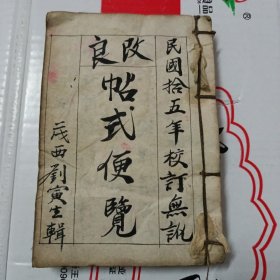 民國拾五年校訂無訛
改良
帖式便覽
西劉寅生輯